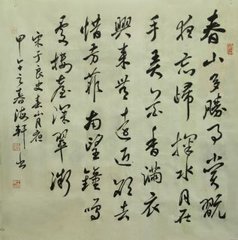 春山多勝事賞翫
夜忘歸掬水月在
手弄花香滿衣
興來無遠近欲去
惜芳菲南望鐘鳴
處樓臺深翠微
宋于良史春山月夜
甲午之春海軒書